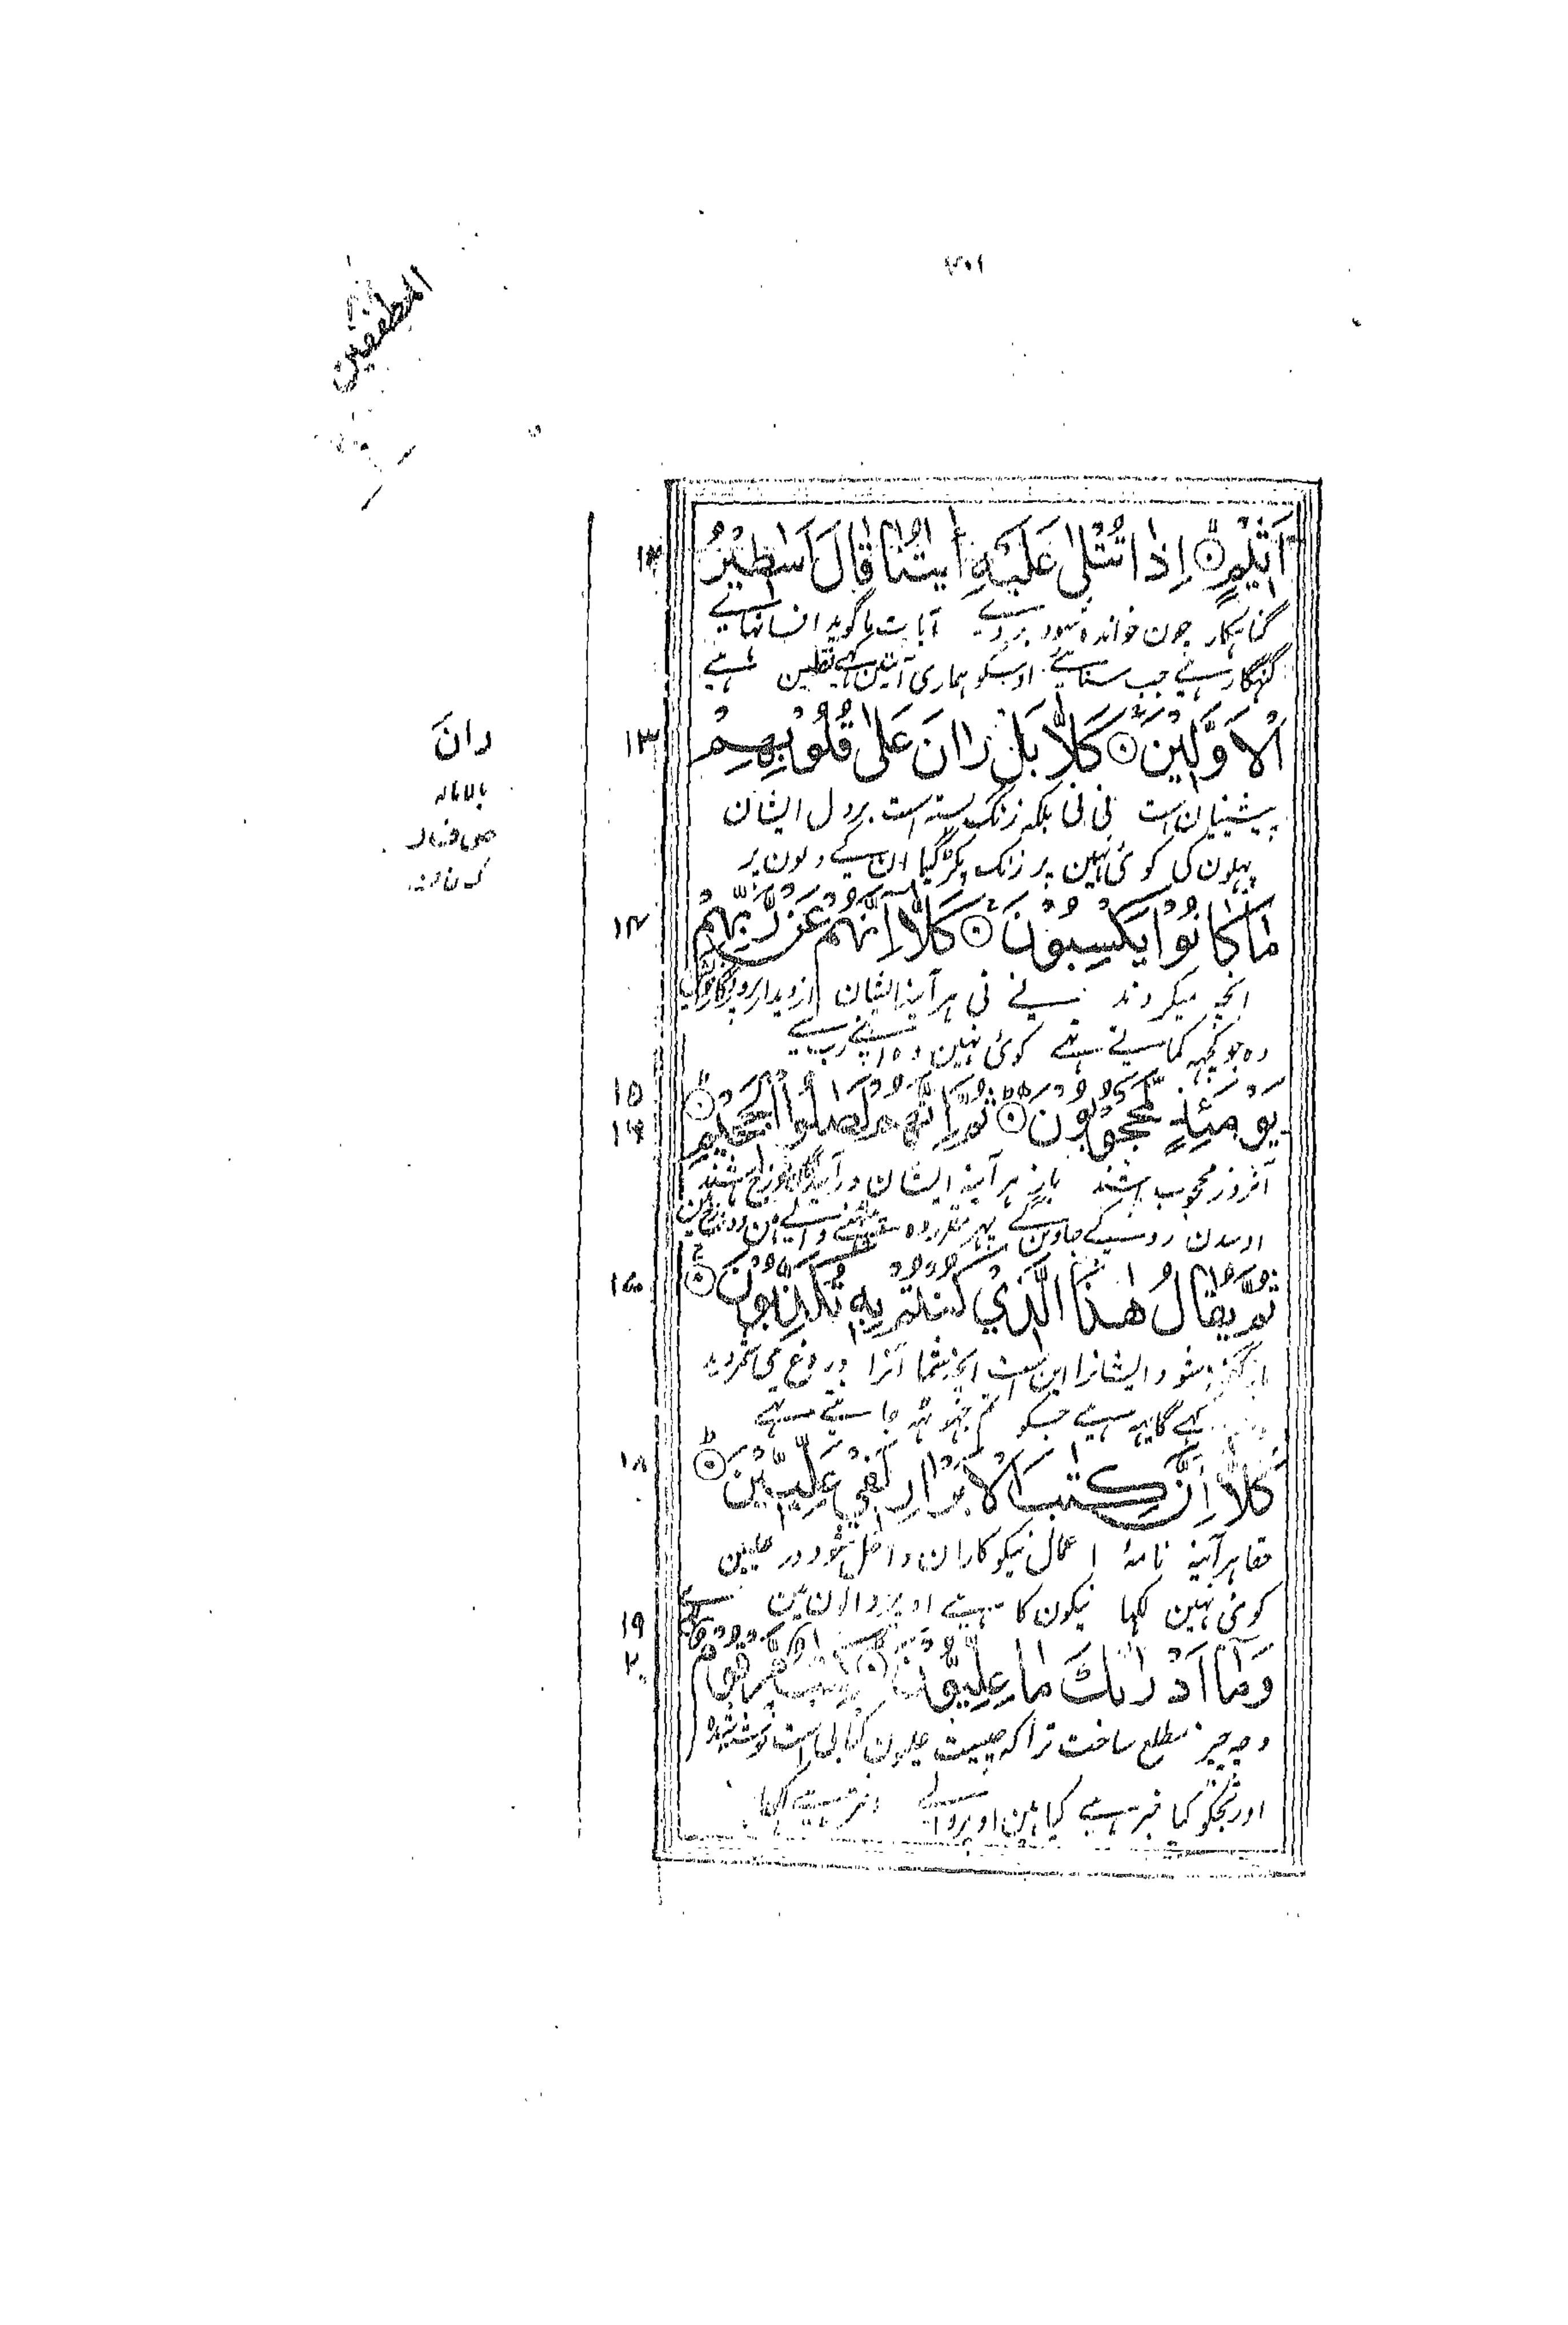 المطففین
اَثِيْمٍ ۙ اِذَا تُتْلٰى عَلَيْهِ اٰيٰتُنَا قَالَ اَسَاطِيْرُ ۱۲
گناہگار چون خواندہ شود بروے آیات ما گوید افسانہاے
گنہگار ہے جب سنائیے اوسکو ہماری آیتین کہے نقلین ہے
الْاَوَّلِيْنَ ؕ كَلَّا بَلْ رَانَ عَلٰى قُلُوْبِهِمْ ۱۳
پیشینیان است نی نی بلکہ زنگ بستہ است بر دل ایشان
پہلون کی کوئی نہین پر زنگ پکڑ گیا ان کے دلون پر
مَا كَانُوْا يَكْسِبُوْنَ كَلَّا اِنَّهُمْ عَنْ رَّبِّهِمْ ۱۴
انچہ میکردند نے نی ہر آینہ ایشان از دیدار پروردگار
وہ جو کچہہ کماتے تہے کوئی نہین وہ اپنے رب سے
يَوْمَئِذٍ لَّمَحْجُوْبُوْنَ ؕ ثُمَّ اِنَّهُمْ لَصَالُوا الْجَحِيْمِ ؕ ۱۵ ۱۶
آنروز محجوب باشند باز ہر آینہ ایشان در آیندگان دوزخ باشند
اوسدن روکے جاوین گے پہر مقرر وہ والے ہین دوزخ مین
ثُمَّ يُقَالُ هٰذَا الَّذِيْ كُنْتُمْ بِهٖ تُكَذِّبُوْنَ ؕ ۱۷
شود ایشانرا این است انچہ شما آنرا دروغ می شمردید
کہے گا یہ ہے جسکو تم جہوٹہہ جانتے تہے
كَلَّا اِنَّ كِتٰبَ الْاَبْرَارِ لَفِيْ عِلِّيِّيْنَ ؕ ۱۸
حقا ہر آینہ نامۂ اعمال نیکوکاران داخل شود در علیین
کوئی نہین لکہا نیکون کا ہے اوپر والون مین
وَمَا اَدْرٰىكَ مَا عِلِّيُّوْنَ ؕ كِتٰبٌ مَّرْقُوْمٌ ۱۹ ۲۰
و چہ چیز مطلع ساخت ترا کہ چیست علیون کتابی است نوشتہ شدہ
اور تجکو کیا خبر ہے کیا ہین اوپر والے دفتر ہے لکہا
رانَ
بالامالہ